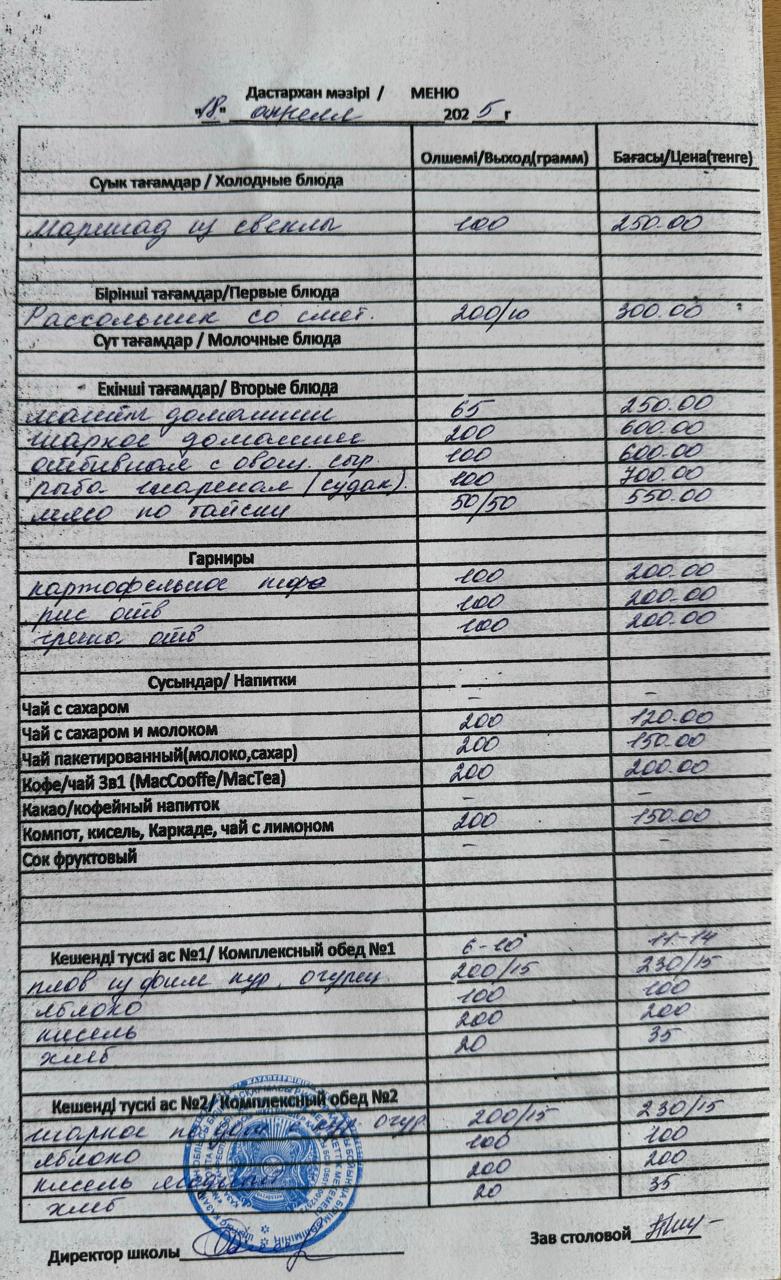 Дастархан мәзірі / МЕНЮ
"18" апреля 2025 г
Олшемі/Выход(грамм) Бағасы/Цена(тенге)
Суык тағамдар / Холодные блюда
Маринад из свеклы 100 250.00
Бірінші тағамдар/Первые блюда
Рассольник со смет. 200/10 300.00
Сут тағамдар / Молочные блюда
Екінші тағамдар/ Вторые блюда
манты домашние 65 250.00
жаркое домашнее 200 600.00
отбивная с овощ. сыр. 100 600.00
рыба жареная (судак). 100 700.00
мясо по тайски 50/50 550.00
Гарниры
картофельное пюре 100 200.00
рис отв 100 200.00
греча отв 100 200.00
Сусындар/ Напитки
Чай с сахаром - -
Чай с сахаром и молоком 200 120.00
Чай пакетированный(молоко,сахар) 200 150.00
Кофе/чай 3в1 (MacCooffe/MacTea) 200 200.00
Какао/кофейный напиток - -
Компот, кисель, Каркаде, чай с лимоном 200 150.00
Сок фруктовый - -
Кешенді тускі ас №1/ Комплексный обед №1 6-10 11-14
плов из филе кур, огурец 200/15 230/15
яблоко 100 100
кисель 200 200
хлеб 20 35
Кешенді тускі ас №2/ Комплексный обед №2
жаркое по дом кур огур. 200/15 230/15
яблоко 100 100
кисель 200 200
хлеб 20 35
Директор школы Зав столовой